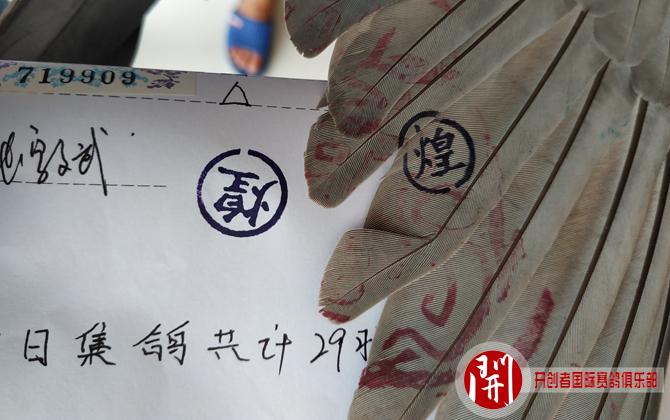 719909
煌
煌
日集鸽共计29羽
開
开创者国际赛鸽俱乐部